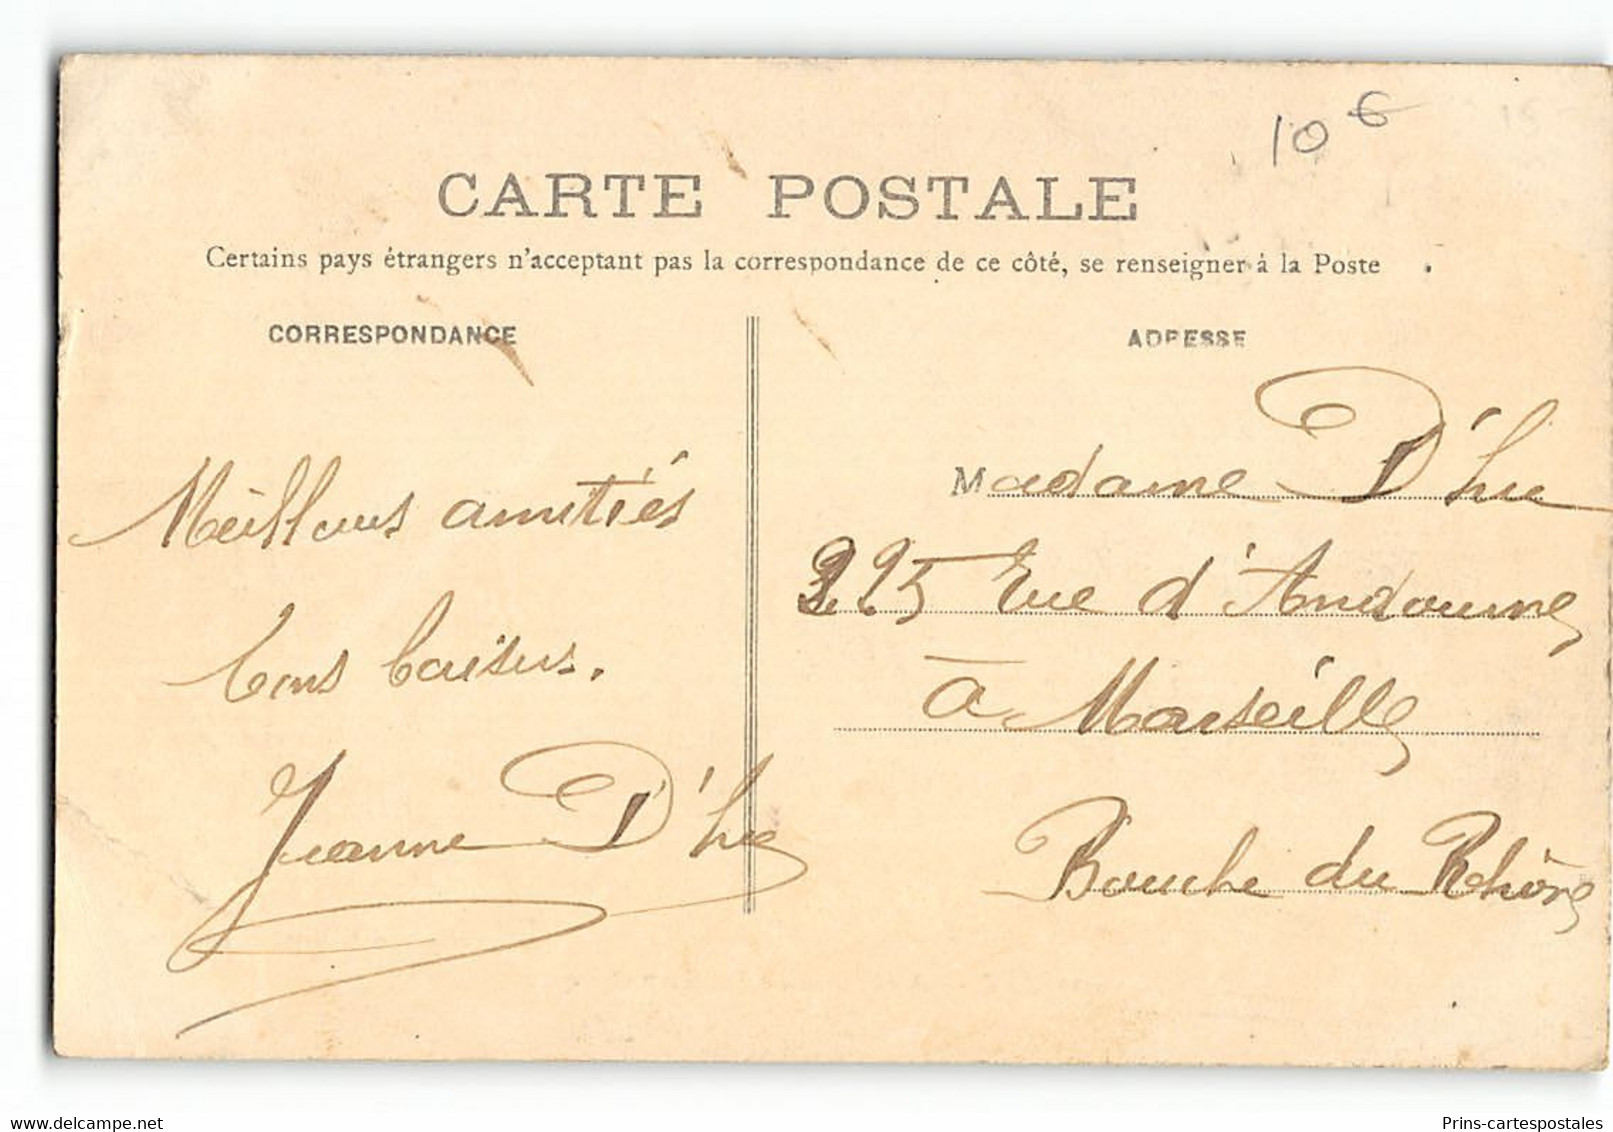 10 €
15
CARTE POSTALE
Certains pays étrangers n'acceptant pas la correspondance de ce côté, se renseigner à la Poste
CORRESPONDANCE
Meilleurs amitiés
bons baisers.
Jeanne D'hu
ADRESSE
Madame D'hu
225 Rue d'Endoume
à Marseille
Bouche du Rhône
www.delcampe.net
Prins-cartespostales